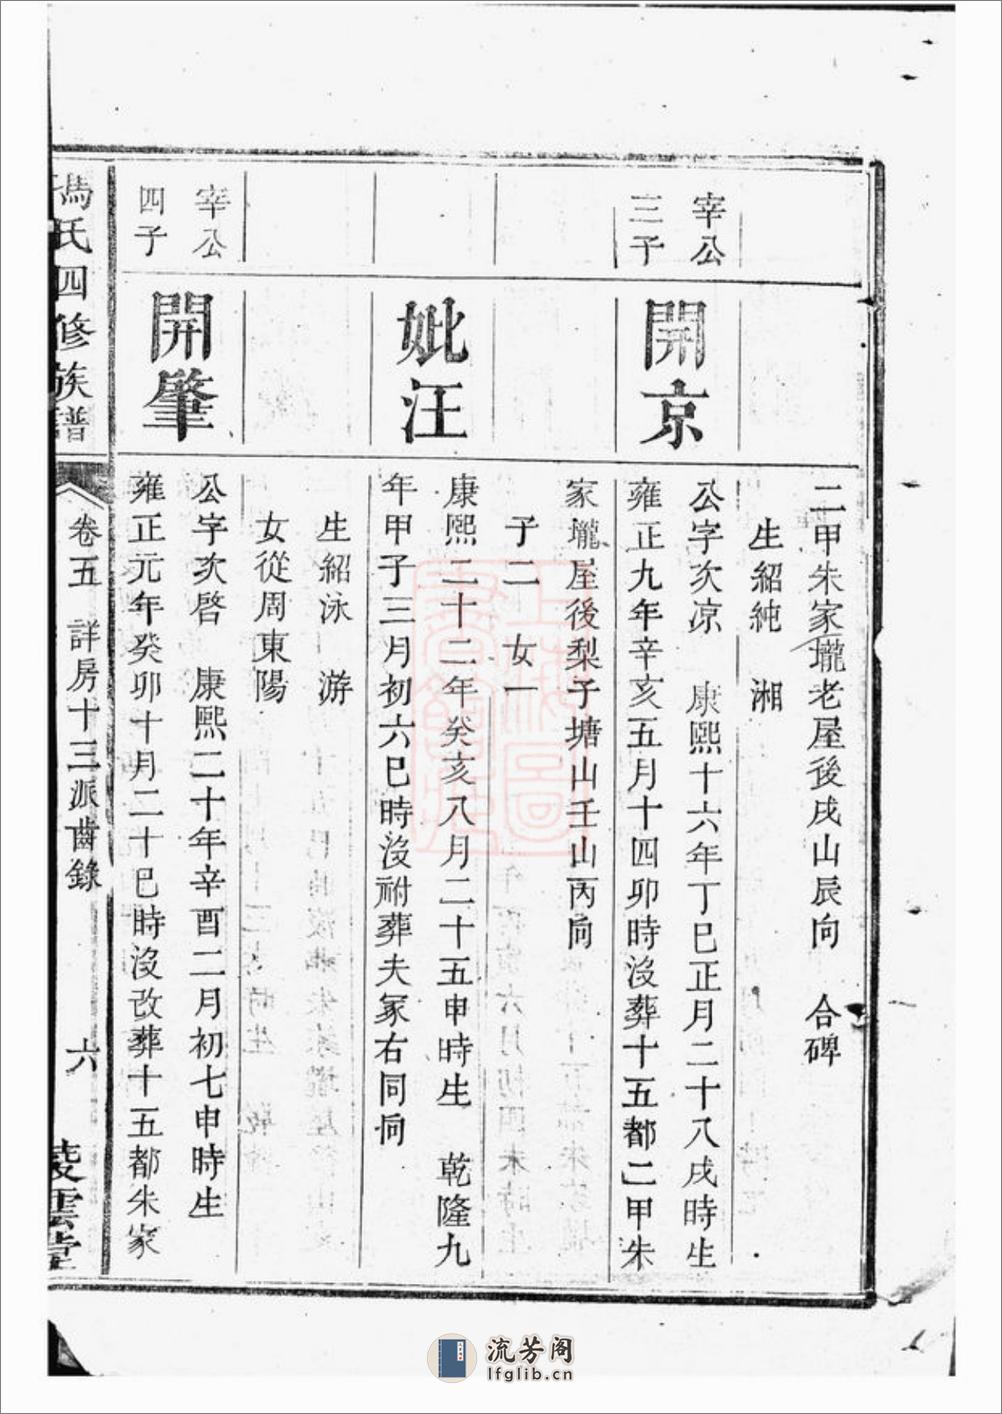 二甲朱家壠老屋後戌山辰向　合碑
生紹純　湘
宰公
三子
開京
公字次凉　康熙十六年丁巳正月二十八戌時生
雍正九年辛亥五月十四卯時沒葬十五都二甲朱
家壠屋後梨子塘山壬山丙向
子二　女一
妣汪
康熙二十二年癸亥八月二十五申時生　乾隆九
年甲子三月初六巳時沒祔葬夫冢右同向
生紹泳　游
女從周東陽
宰公
四子
開肇
公字次啓　康熙二十年辛酉二月初七申時生
雍正元年癸卯十月二十巳時沒改葬十五都朱家
馮氏四修族譜
卷五　詳房十三派齒錄
六
凌雲堂
上海圖
書館藏
流芳阁
lfglib.cn